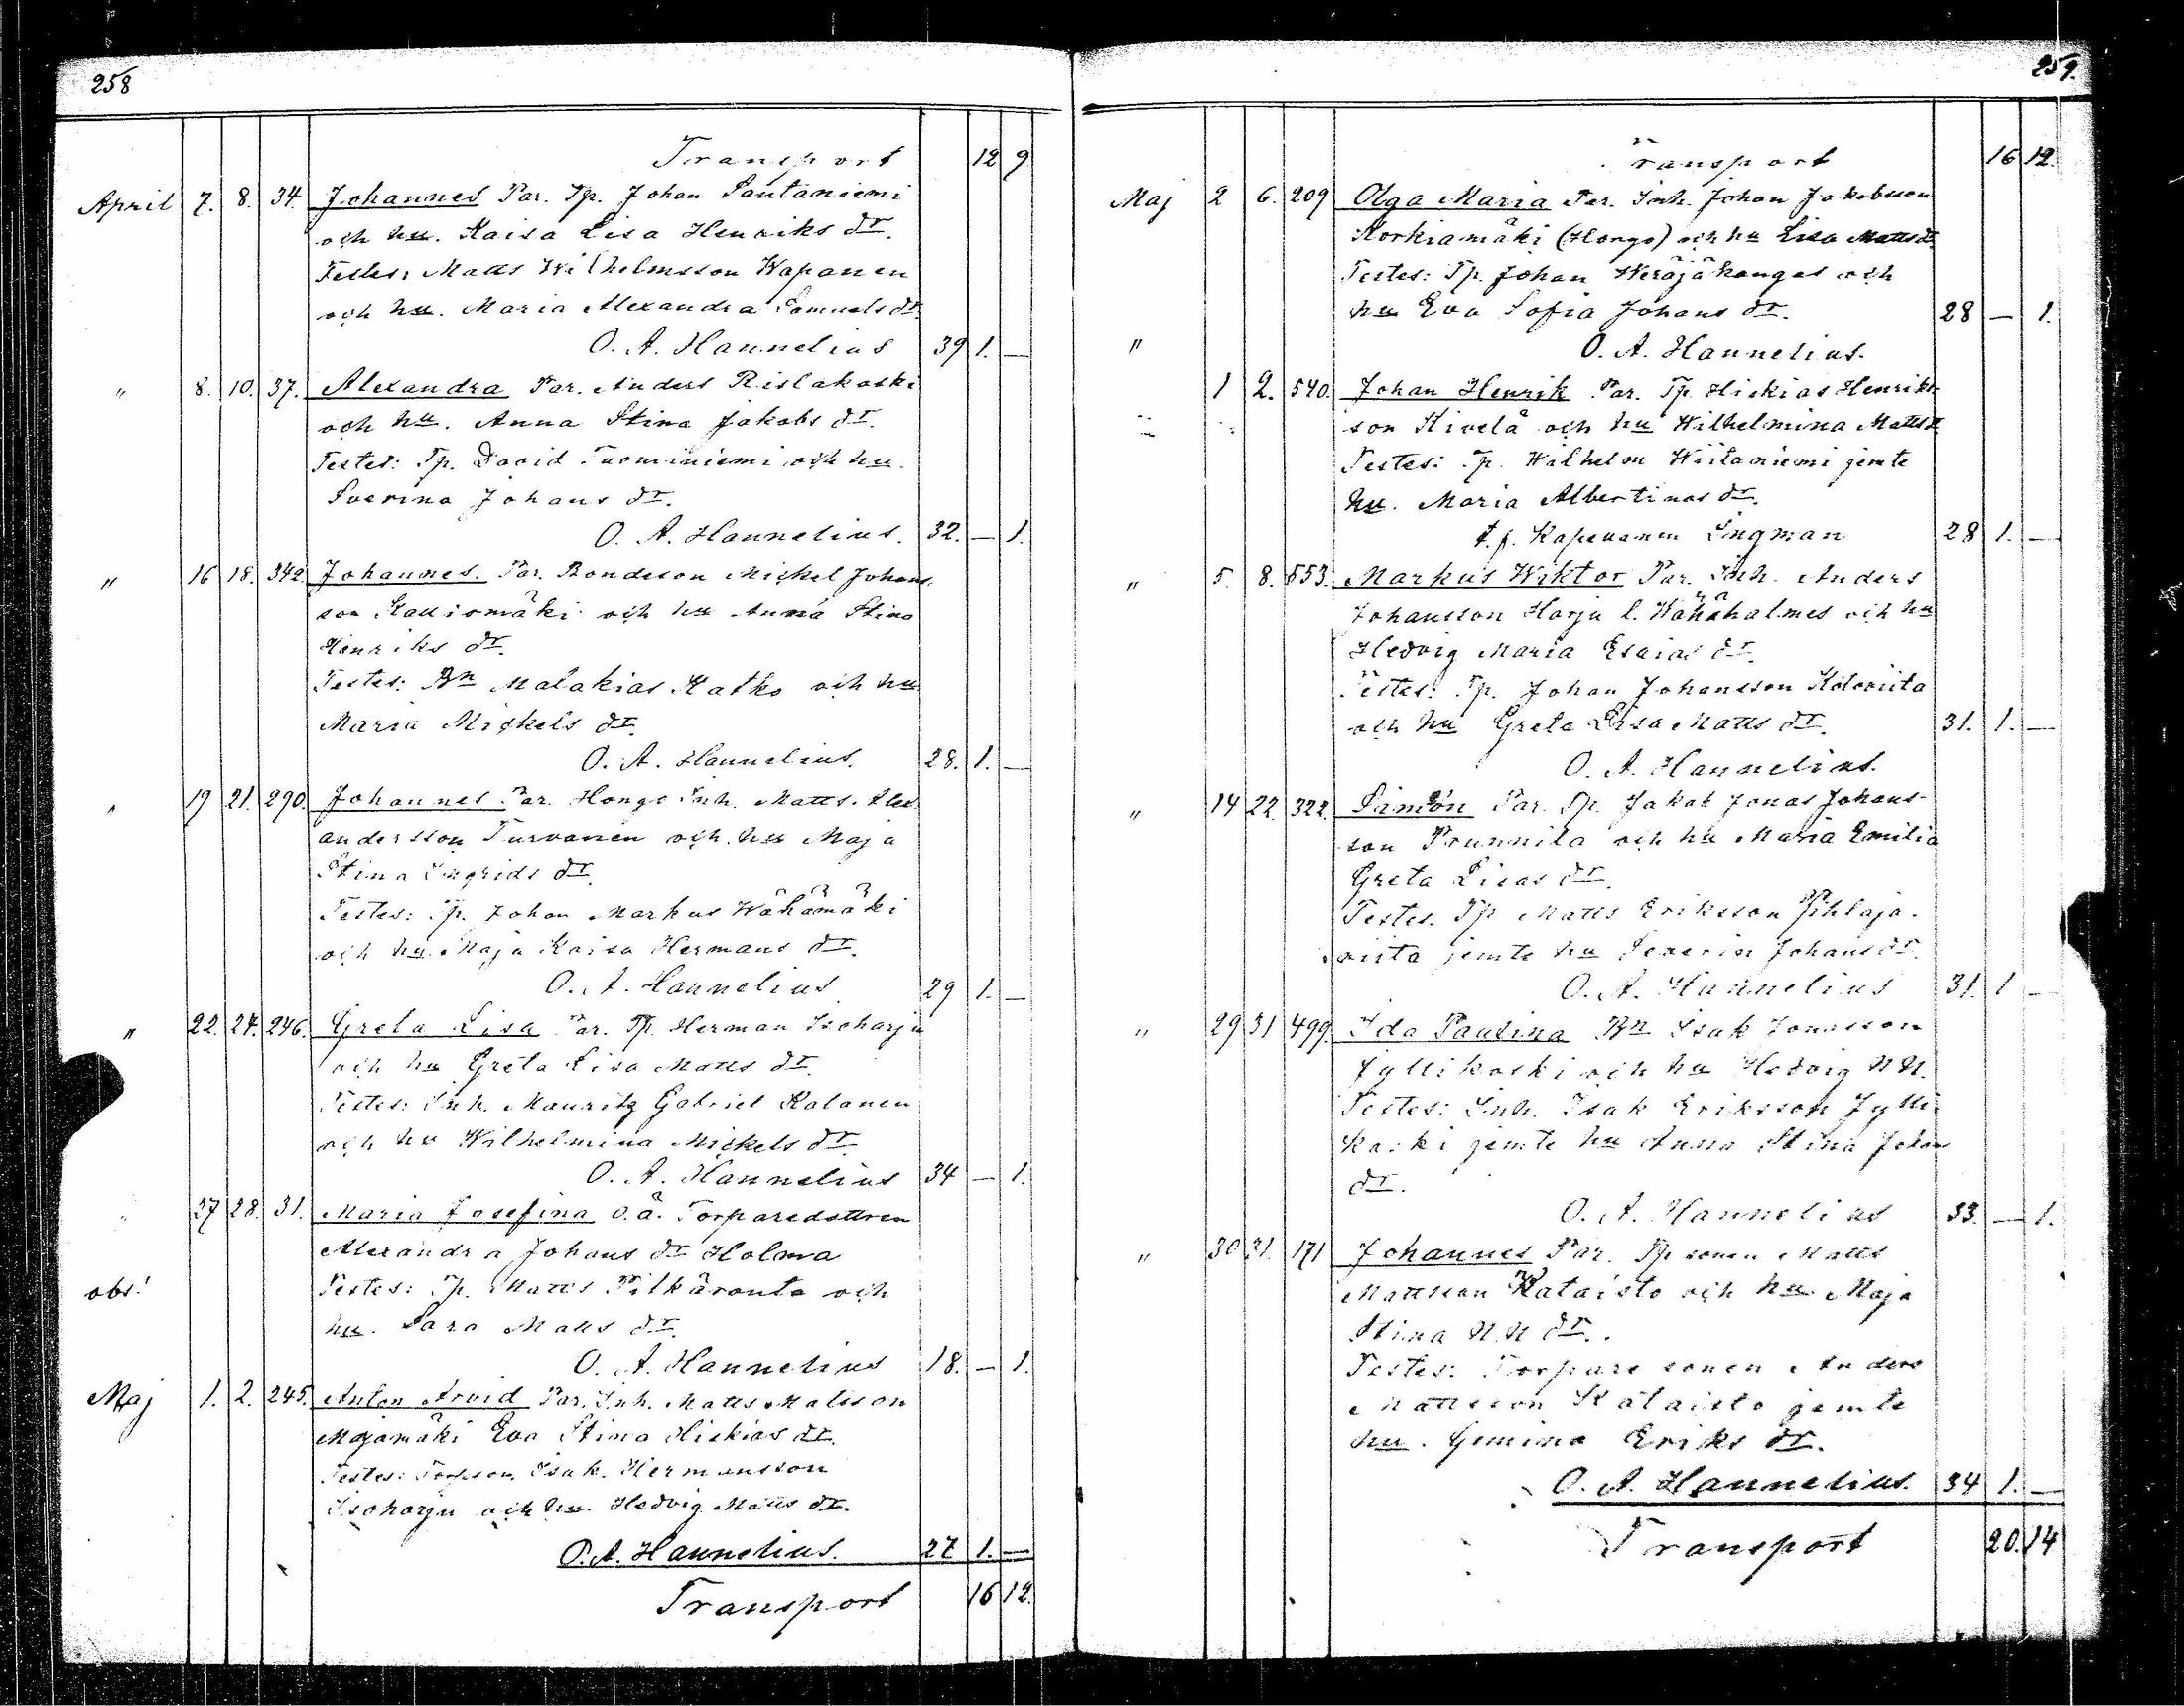 258
Transport 12 9
April 7. 8. 34. Johannes Par. Tp. Johan Santaniemi
och hu. Kaisa Lisa Henriks dr.
Testes: Matts Wilhelmsson Wapanen
och hu. Maria Alexandra Samuels dr
O. A. Hannelius 39 1. —
" 8. 10. 37. Alexandra Par. Anders Rislakoski
och hu. Anna Stina Jakobs dr.
Testes: Tp. David Tuominiemi och hu.
Sverina Johans dr.
O. A. Hannelius. 32. — 1.
" 16 18. 342. Johannes. Par. Bondeson Mickel Johans
son Kauismäki och hu Anna Stina
Henriks dr.
Testes: Bn Malakias Katko och hu
Maria Mickels dr.
O. A. Hannelius. 28. 1. —
" 19 21. 290. Johannes Par. Hongo Inh. Matts Alex
andersson Turvanen och hu Maja
Stina Ingrids dr.
Testes: Tp. Johan Markus Wähämäki
och hu Maja Kaisa Hermans dr.
O. A. Hannelius 29 1. —
" 22. 24. 246. Greta Lisa Par. Tp. Herman Isoharju
och hu Greta Lisa Matts dr.
Testes: Inh. Mauritz Gabriel Kalanen
och hu Wilhelmina Mickels dr.
O. A. Hannelius 34 — 1.
27 28. 31. Maria Josefina o.ä. Torparedottren
Alexandra Johans dr Holma
obs! Testes: Tp. Matts Pitkäranta och
hu. Sara Matts dr.
O. A. Hannelius 18. — 1.
Maj 1. 2. 245. Anton Arvid Par. Inh. Matts Matsson
Mojamäki Eva Stina Hiskias dr.
Testes: Isak Hermansson
Isoharju och hu. Hedvig Matts dr.
O. A. Hannelius. 27 1. —
Transport 16 12.
259.
Transport 16 12.
Maj 2 6. 209 Olga Maria Par. Inh. Johan Jakobsson
Korkiamäki (Hongo) och hu Lisa Matts dr
Testes: Tp. Johan Weräjäkangas och
hu Eva Sofia Johans dr. 28 — 1.
" O. A. Hannelius.
1 2. 540. Johan Henrik Par. Tp. Hiskias Henriks
son Kivelä och hu Wilhelmina Matts dr
Testes: Tp. Wilhelm Wiitaniemi jemte
hu. Maria Albertinas dr.
t.f. Kapellanen Ingman 28 1. —
" 5. 8. 553. Markus Wiktor Par. Inh. Anders
Johansson Harju l. Wähähalmes och hu
Hedvig Maria Esaias dr.
Testes: Tp. Johan Johansson Kotoviita
och hu Greta Lisa Matts dr. 31. 1. —
O. A. Hannelius.
" 14 22. 322. Simeon Par. Tp. Jakob Jonas Johans-
son Prunnila och hu Maria Emilia
Greta Lisas dr.
Testes. Tp Matts Eriksson Pihlaja-
viita jemte hu Severin Johans dr.
O. A. Hannelius 31. 1 —
" 29 31 499. Ida Paulina Bn Isak Jonasson
Jyllikoski och hu Hedvig N N.
Testes: Inh. Isak Eriksson Jylli
koski jemte hu Anna Stina Johans
dr.
O. A. Hannelius 33. — 1.
" 30 31. 171 Johannes Par. Tp sonen Matts
Mattsson Kataisto och hu. Maja
Stina N. N dr.
Testes: Torpare sonen Anders
Mattsson Kataisto jemte
hu. Gemima Eriks dr.
O. A. Hannelius. 34 1. —
Transport 20. 14